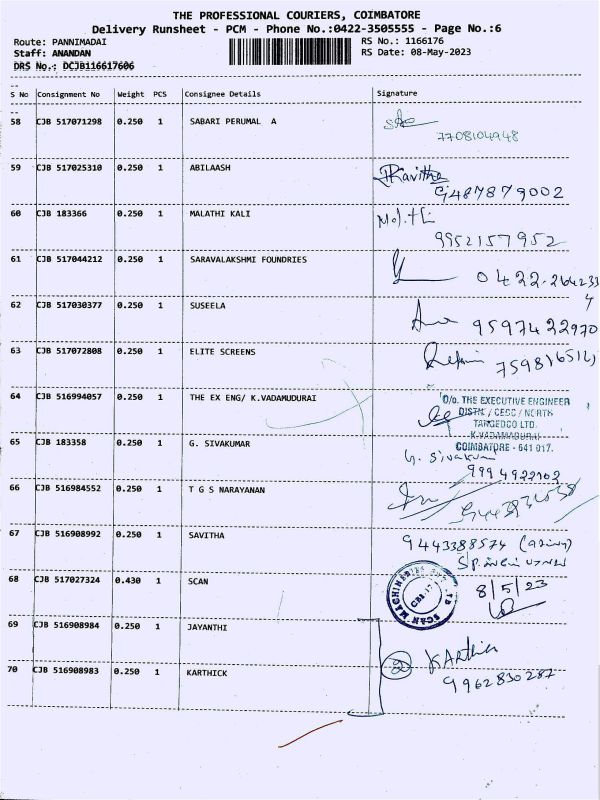 THE PROFESSIONAL COURIERS, COIMBATORE
Delivery Runsheet - PCM - Phone No.:0422-3505555 - Page No.:6
Route: PANNIMADAI RS No.: 1166176
Staff: ANANDAN RS Date: 08-May-2023
DRS No.: DCJB116617606
S No Consignment No Weight PCS Consignee Details Signature
58 CJB 517071298 0.250 1 SABARI PERUMAL A
7708104948
59 CJB 517025310 0.250 1 ABILAASH Kavitha
9487879002
60 CJB 183366 0.250 1 MALATHI KALI
9952157952
61 CJB 517044212 0.250 1 SARAVALAKSHMI FOUNDRIES
0422-264233
4
62 CJB 517030377 0.250 1 SUSEELA
9597422970
63 CJB 517072808 0.250 1 ELITE SCREENS
64 CJB 516994057 0.250 1 THE EX ENG/ K.VADAMUDURAI
O/o. THE EXECUTIVE ENGINEER
DISTN / CEDC / NORTH
TANGEDCO LTD.
K.VADAMADURAI
COIMBATORE - 641 017.
65 CJB 183358 0.250 1 G. SIVAKUMAR G. Sivakumar
9994922902
66 CJB 516984552 0.250 1 T G S NARAYANAN
67 CJB 516908992 0.250 1 SAVITHA 9443388574
68 CJB 517027324 0.430 1 SCAN 8/5/23
SCAN MACHINERIES PVT LTD
CBE-17
69 CJB 516908984 0.250 1 JAYANTHI
2 KARthick
70 CJB 516908983 0.250 1 KARTHICK 9962830287